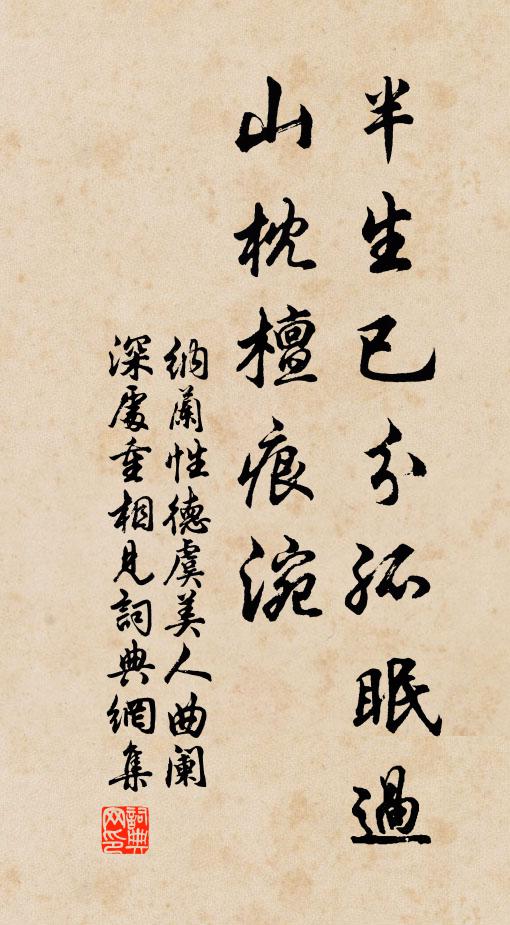 半生已分孤眠過
山枕檀痕涴
納蘭性德虞美人曲闌
深處重相見詞典網集
詞典
网印